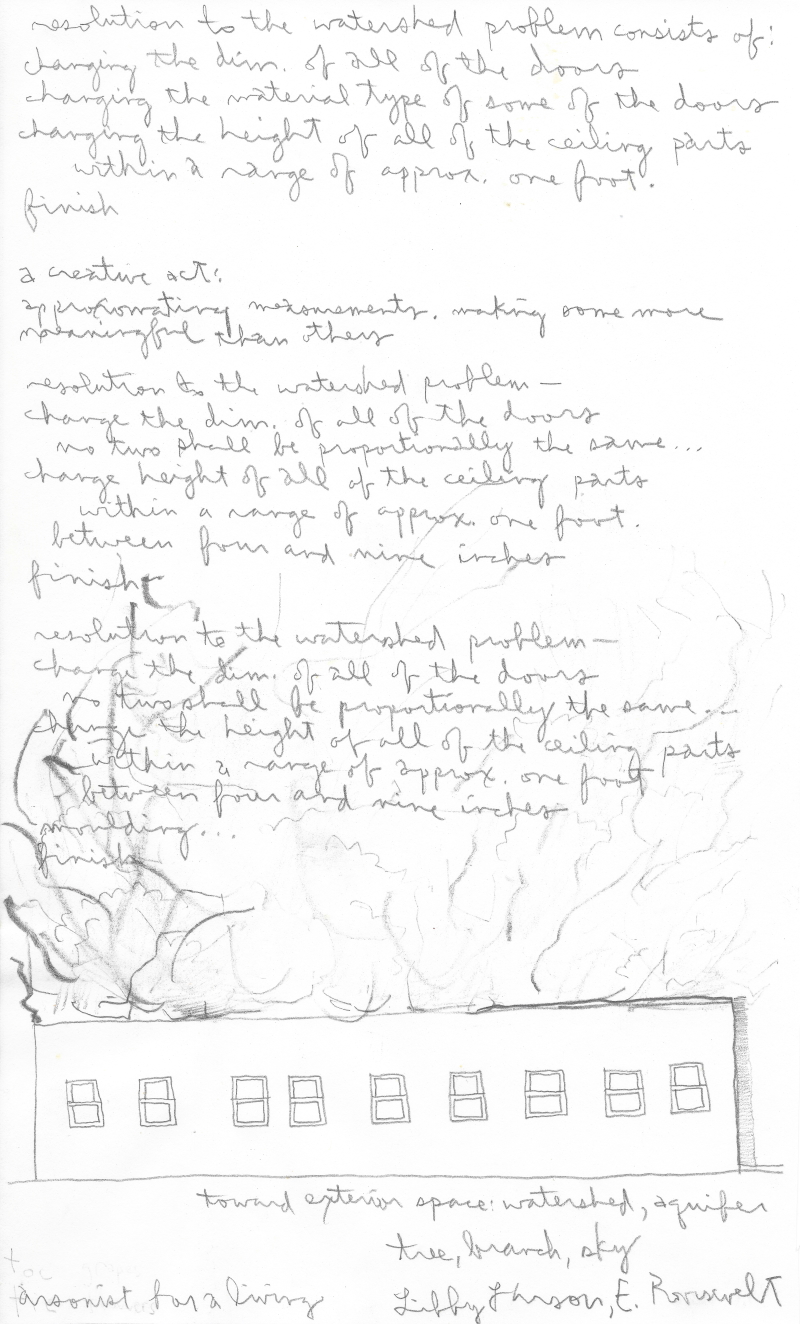 resolution to the watershed problem consists of:
changing the dim. of all of the doors
changing the material type of some of the doors
changing the height of all of the ceiling parts
within a range of approx. one foot.
finish
a creative act:
approximating measurements, making some more
meaningful than others
resolution to the watershed problem —
change the dim. of all of the doors
no two shall be proportionally the same...
change height of all of the ceiling parts
within a range of approx. one foot.
between four and nine inches
finish
resolution to the watershed problem —
change the dim. of all of the doors
no two shall be proportionally the same...
change the height of all of the ceiling parts
within a range of approx. one foot
between four and nine inches
moulding...
finish
toward exterior space: watershed, aquifer
tree, branch, sky
arsonist for a living
Libby Larson, E. Roosevelt